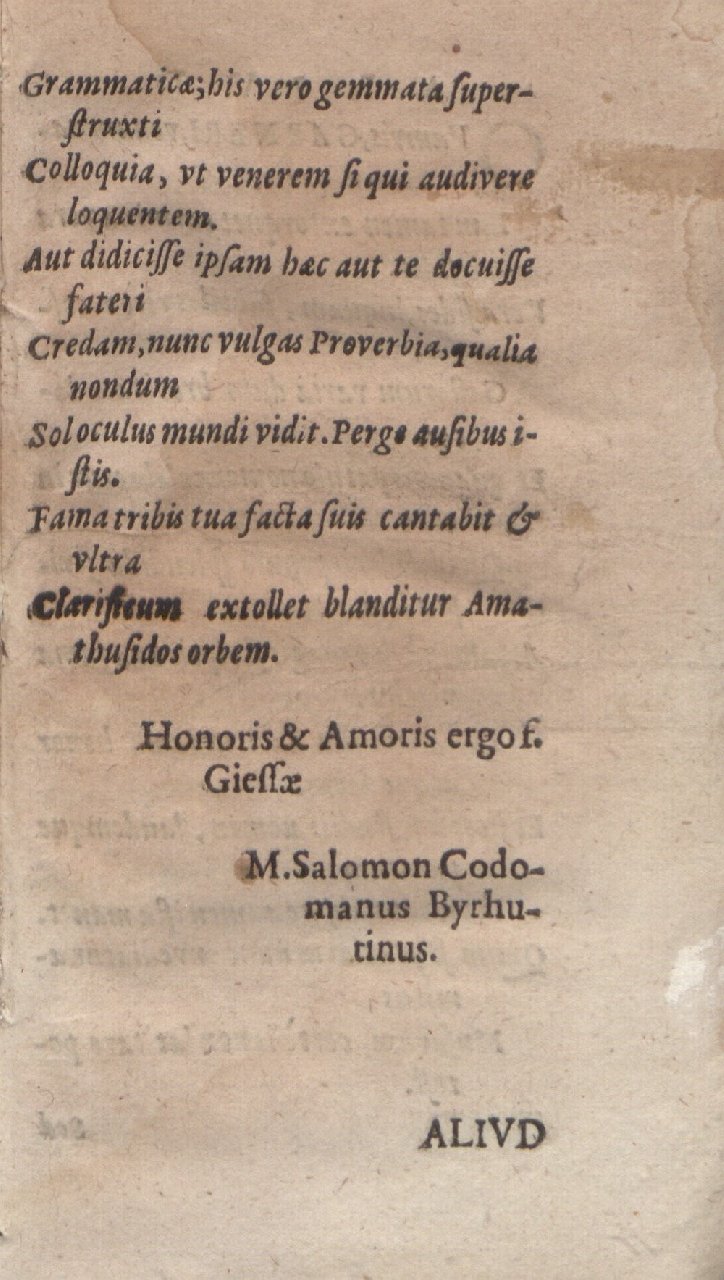 Grammaticæ; his vero gemmata ſuper-
ſtruxti
Colloquia, vt venerem ſi qui audivere
loquentem.
Aut didiciſſe ipſam hæc aut te docuiſſe
fateri
Credam, nunc vulgas Proverbia, qualia
nondum
Sol oculus mundi vidit. Perge auſibus i-
ſtis.
Fama tribis tua facta ſuis cantabit &
vltra
Clariſicum extollet blanditur Ama-
thuſidos orbem.
Honoris & Amoris ergo f.
Gieſſæ
M. Salomon Codo-
manus Byrhu-
tinus.
ALIVD